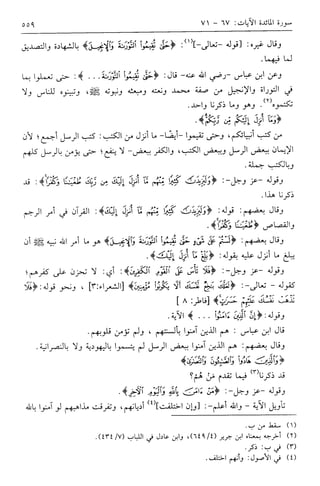 سورة المائدة الآيات: ٦٧ - ٧١ ٥٥٩
وقال غيره: [قوله -تعالى-](١): ﴿حَتَّى تُقِيمُوا التَّوْرَاةَ وَالْإِنجِيلَ﴾ بالشهادة والتصديق
لما فيهما.
وعن ابن عباس -رضي الله عنه- قال: ﴿حَتَّى تُقِيمُوا التَّوْرَاةَ . . . ﴾: حتى تعملوا بما
في التوراة والإنجيل من صفة محمد ونعته ومبعثه ونبوته ﷺ، وتبينوه للناس ولا
تكتموه(٢). وهو وما ذكرنا واحد.
﴿وَمَا أُنزِلَ إِلَيْكُم مِّن رَّبِّكُمْ﴾.
من كتب أنبيائكم، وحتى تقيموا -أيضًا- ما أنزل من الكتب: كتب الرسل أجمع؛ لأن
الإيمان ببعض الرسل وببعض الكتب، والكفر ببعض- لا ينفع؛ حتى يؤمن بالرسل كلهم
وبالكتب جملة.
وقوله -عز وجل-: ﴿وَلَيَزِيدَنَّ كَثِيرًا مِّنْهُم مَّا أُنزِلَ إِلَيْكَ مِن رَّبِّكَ طُغْيَانًا وَكُفْرًا﴾: قد
ذكرنا هذا.
وقال بعضهم: قوله: ﴿وَلَيَزِيدَنَّ كَثِيرًا مِّنْهُم مَّا أُنزِلَ إِلَيْكَ﴾: القرآن في أمر الرجم
والقصاص ﴿طُغْيَانًا وَكُفْرًا﴾.
وقال بعضهم: ﴿لَسْتُمْ عَلَى شَيْءٍ حَتَّى تُقِيمُوا التَّوْرَاةَ وَالْإِنجِيلَ﴾ هو ما أمر الله نبيه ﷺ أن
يبلغ ما أنزل عليه بقوله: ﴿بَلِّغْ مَا أُنزِلَ إِلَيْكَ﴾.
وقوله -عز وجل-: ﴿فَلَا تَأْسَ عَلَى الْقَوْمِ الْكَافِرِينَ﴾: أي: لا تحزن على كفرهم؛
كقوله - تعالى-: ﴿لَعَلَّكَ بَاخِعٌ نَّفْسَكَ أَلَّا يَكُونُوا مُؤْمِنِينَ﴾ [الشعراء:٣] ، ونحو قوله: ﴿فَلَا
تَذْهَبْ نَفْسُكَ عَلَيْهِمْ حَسَرَاتٍ﴾ [فاطر: ٨ ]
وقوله: ﴿إِنَّ الَّذِينَ ءَامَنُوا . . . ﴾ الآية.
قال ابن عباس : هم الذين آمنوا بألسنتهم ، ولم تؤمن قلوبهم.
وقال بعضهم: هم الذين آمنوا ببعض الرسل لم يتسموا باليهودية ولا بالنصرانية.
﴿وَالَّذِينَ هَادُوا وَالصَّابِئُونَ وَالنَّصَارَى﴾
قد ذكرنا(٣) فيما تقدم مَنْ هُمْ؟
وقوله -عز وجل-: ﴿مَنْ ءَامَنَ بِاللَّهِ وَالْيَوْمِ الْآخِرِ﴾.
تأويل الآية - والله أعلم-: [وإن اختلفت](٤) أديانهم، وتفرقت مذاهبهم لو آمنوا بالله
(١) سقط من ب.
(٢) أخرجه بمعناه ابن جرير (٤/ ٦٤٩)، وابن عادل في اللباب (٧/ ٤٣٤).
(٣) في ب: ذكر.
(٤) في الأصول: وأنهم اختلف.